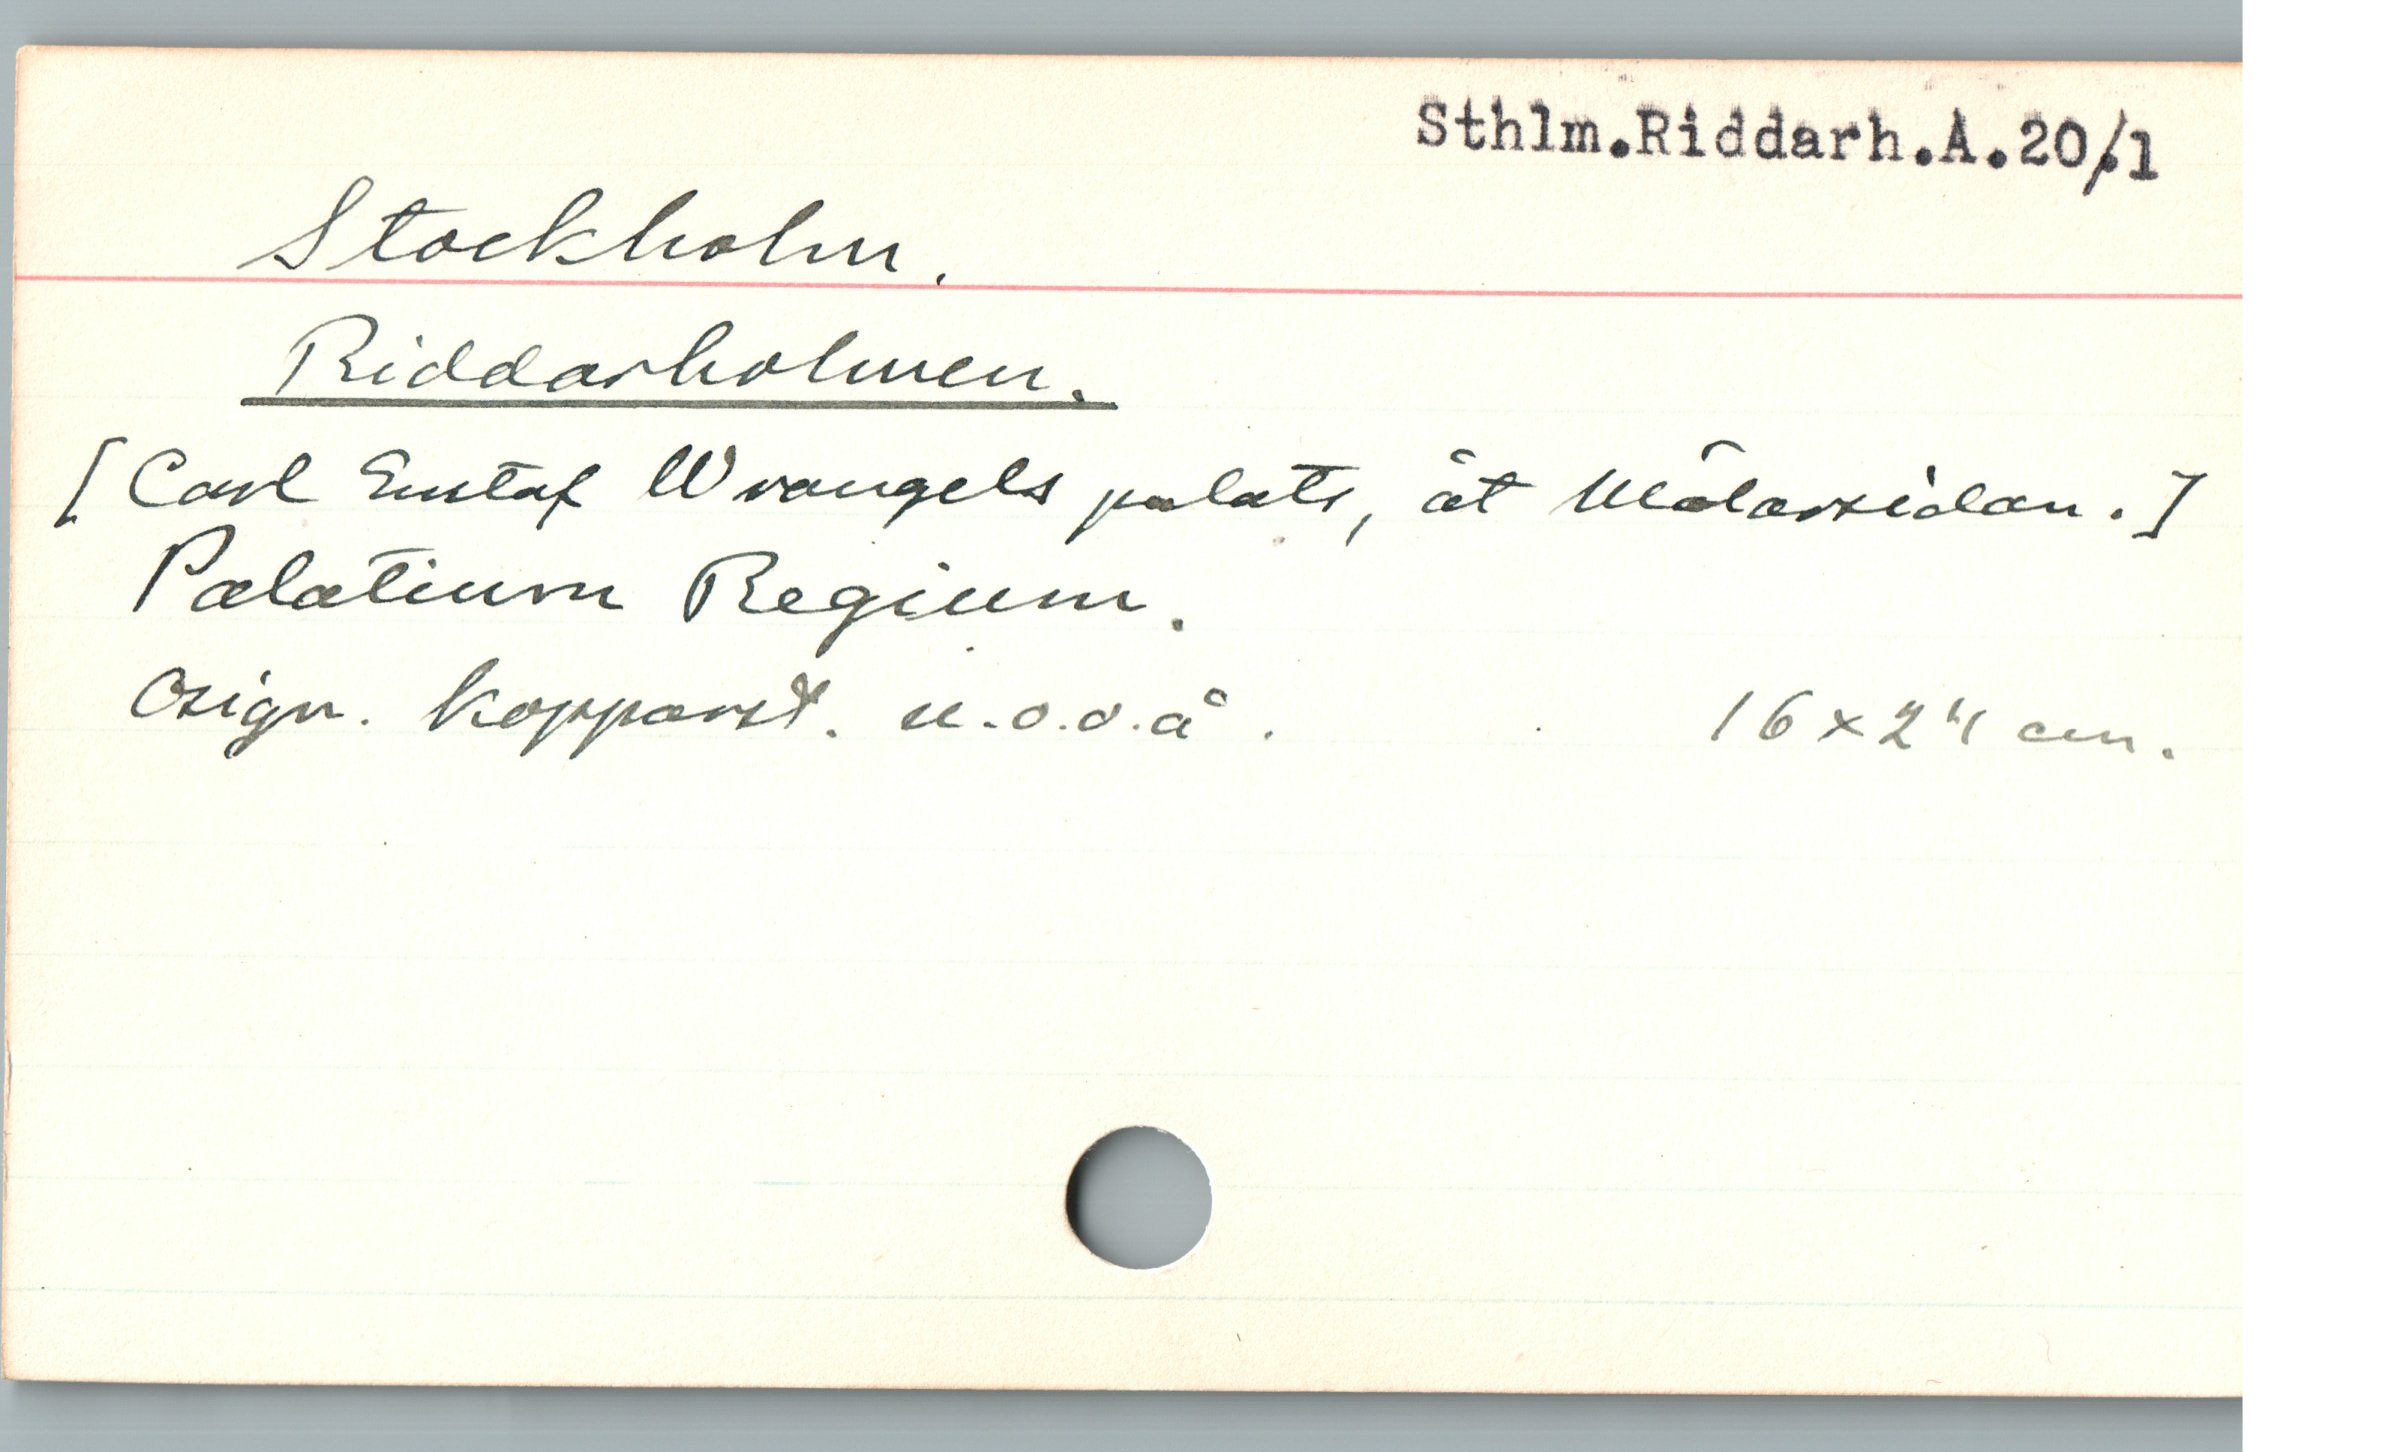 Sthlm.Riddarh.A.20/1
Stockholm.
Riddarholmen.
[Carl Gustaf Wrangels palats, åt Mälarsidan.]
Palatium Regium.
Osign. kopparst. u.o.o.å. 16 x 24 cm.